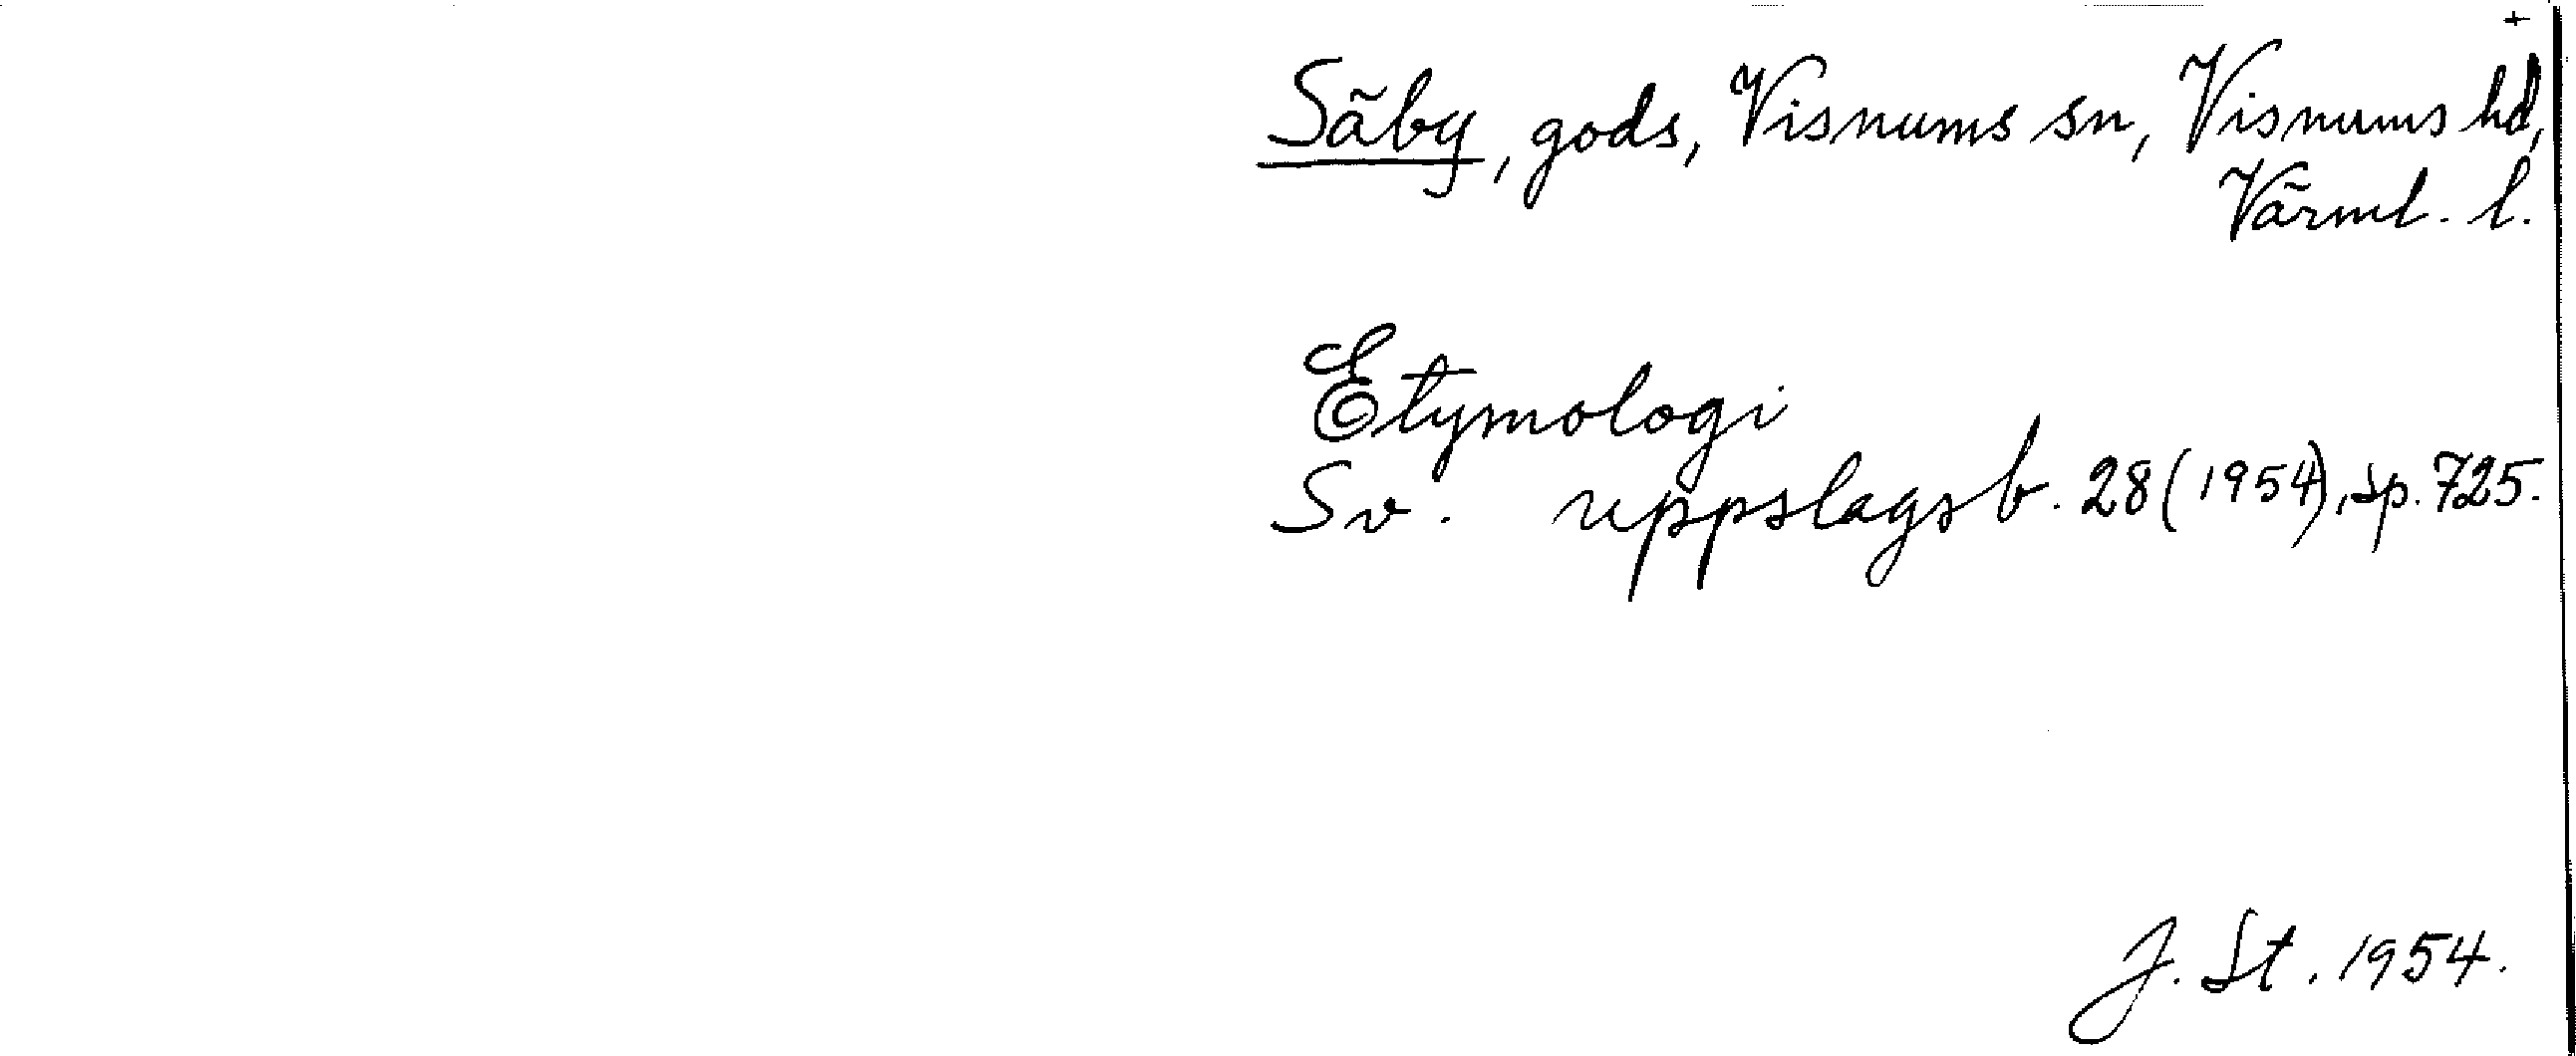 +
Säby, gods, Visnums sn, Visnums hd,
Värml. l.
Etymologi
Sv. uppslagsb. 28 (1954), sp. 725.
J. St. 1954.